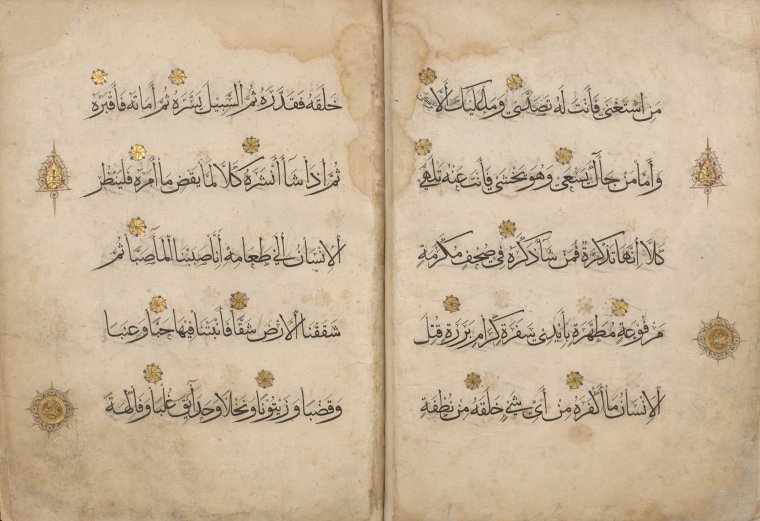 مَنِ اسْتَغْنَى فَأَنْتَ لَهُ تَصَدَّى وَمَا عَلَيْكَ أَلَّا
وَأَمَّا مَنْ جَاءَكَ يَسْعَى وَهُوَ يَخْشَى فَأَنْتَ عَنْهُ تَلَهَّى
كَلَّا إِنَّهَا تَذْكِرَةٌ فَمَنْ شَاءَ ذَكَرَهُ فِي صُحُفٍ مُكَرَّمَةٍ
مَرْفُوعَةٍ مُطَهَّرَةٍ بِأَيْدِي سَفَرَةٍ كِرَامٍ بَرَرَةٍ قُتِلَ
الْإِنْسَانُ مَا أَكْفَرَهُ مِنْ أَيِّ شَيْءٍ خَلَقَهُ مِنْ نُطْفَةٍ
خَلَقَهُ فَقَدَّرَهُ ثُمَّ السَّبِيلَ يَسَّرَهُ ثُمَّ أَمَاتَهُ فَأَقْبَرَهُ
ثُمَّ إِذَا شَاءَ أَنْشَرَهُ كَلَّا لَمَّا يَقْضِ مَا أَمَرَهُ فَلْيَنْظُرِ
الْإِنْسَانُ إِلَى طَعَامِهِ أَنَّا صَبَبْنَا الْمَاءَ صَبًّا ثُمَّ
شَقَقْنَا الْأَرْضَ شَقًّا فَأَنْبَتْنَا فِيهَا حَبًّا وَعِنَبًا
وَقَضْبًا وَزَيْتُونًا وَنَخْلًا وَحَدَائِقَ غُلْبًا وَفَاكِهَةً